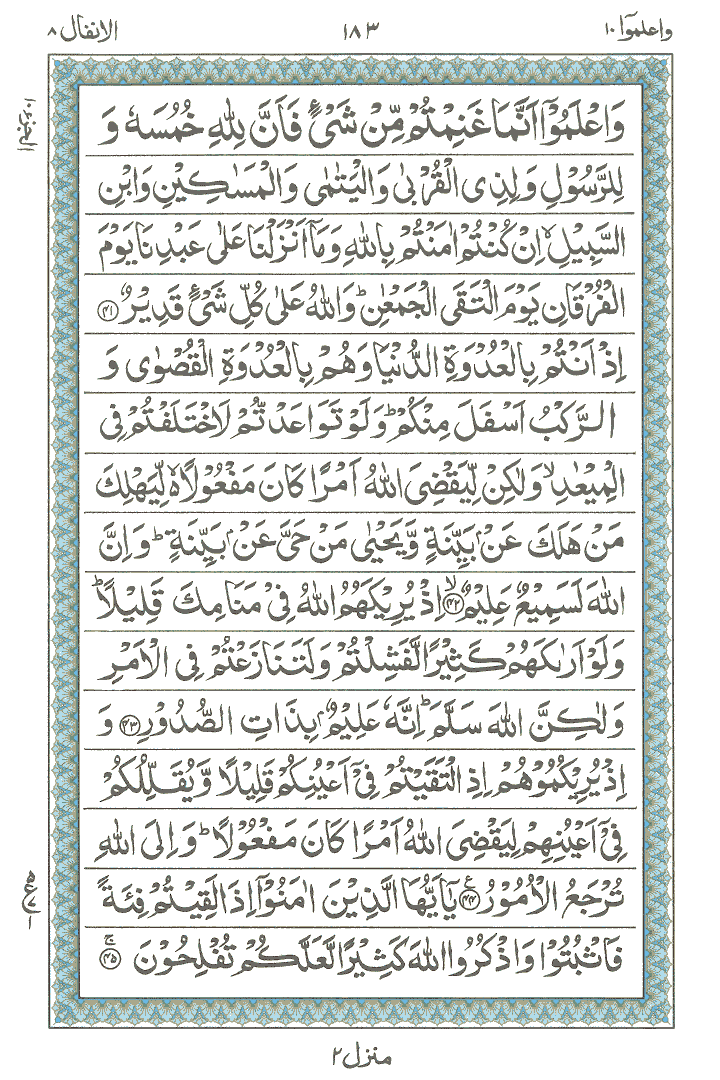 الانفال ٨ ١٨٣ واعلموٓا ١٠
الجزء ١٠
وَاعْلَمُوْٓا اَنَّمَا غَنِمْتُمْ مِّنْ شَیْءٍ فَاَنَّ لِلّٰهِ خُمُسَهٗ وَ
لِلرَّسُوْلِ وَلِذِی الْقُرْبٰی وَالْیَتٰمٰی وَالْمَسٰكِیْنِ وَابْنِ
السَّبِیْلِ ۙ اِنْ كُنْتُمْ اٰمَنْتُمْ بِاللّٰهِ وَمَاۤ اَنْزَلْنَا عَلٰی عَبْدِنَا یَوْمَ
الْفُرْقَانِ یَوْمَ الْتَقَی الْجَمْعٰنِ ؕ وَاللّٰهُ عَلٰی كُلِّ شَیْءٍ قَدِیْرٌ ﴿۴۱﴾
اِذْ اَنْتُمْ بِالْعُدْوَةِ الدُّنْیَا وَهُمْ بِالْعُدْوَةِ الْقُصْوٰی وَ
الرَّكْبُ اَسْفَلَ مِنْكُمْ ؕ وَلَوْ تَوَاعَدْتُّمْ لَاخْتَلَفْتُمْ فِی
الْمِیْعٰدِ ۙ وَلٰكِنْ لِّیَقْضِیَ اللّٰهُ اَمْرًا كَانَ مَفْعُوْلًا ۙ۬ لِّیَهْلِكَ
مَنْ هَلَكَ عَنْۢ بَیِّنَةٍ وَّیَحْیٰی مَنْ حَیَّ عَنْۢ بَیِّنَةٍ ؕ وَاِنَّ
اللّٰهَ لَسَمِیْعٌ عَلِیْمٌ ﴿۴۲﴾ۙ اِذْ یُرِیْكَهُمُ اللّٰهُ فِیْ مَنَامِكَ قَلِیْلًا ؕ
وَلَوْ اَرٰىكَهُمْ كَثِیْرًا لَّفَشِلْتُمْ وَلَتَنَازَعْتُمْ فِی الْاَمْرِ
وَلٰكِنَّ اللّٰهَ سَلَّمَ ؕ اِنَّهٗ عَلِیْمٌۢ بِذَاتِ الصُّدُوْرِ ﴿۴۳﴾ وَ
اِذْ یُرِیْكُمُوْهُمْ اِذِ الْتَقَیْتُمْ فِیْۤ اَعْیُنِكُمْ قَلِیْلًا وَّیُقَلِّلُكُمْ
فِیْۤ اَعْیُنِهِمْ لِیَقْضِیَ اللّٰهُ اَمْرًا كَانَ مَفْعُوْلًا ؕ وَاِلَی اللّٰهِ
تُرْجَعُ الْاُمُوْرُ ﴿۴۴﴾ۧ یٰۤاَیُّهَا الَّذِیْنَ اٰمَنُوْۤا اِذَا لَقِیْتُمْ فِئَةً
فَاثْبُتُوْا وَاذْكُرُوا اللّٰهَ كَثِیْرًا لَّعَلَّكُمْ تُفْلِحُوْنَ ﴿۴۵﴾ۚ
منزل ٢